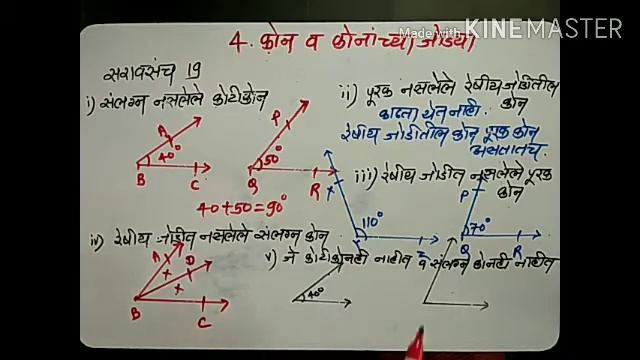 Made with KINEMASTER
4. कोन व कोनांच्या जोड्या
सरावसंच 19
i) संलग्न नसलेले कोटीकोन
A
40°
B
C
P
50°
Q
R
40+50=90°
ii) पूरक नसलेले रेषीय जोडीतील
कोन
काढता येत नाही.
रेषीय जोडीतील कोन पूरक कोन
असतातच.
iii) रेषीय जोडीत नसलेले पूरक
कोन
X
110°
Y
Z
P
70°
Q
R
iv) रेषीय जोडीत नसलेले संलग्न कोन
A
D
x
x
B
C
v) जे कोटीकोनही नाहीत व संलग्न कोनही नाहीत
40°